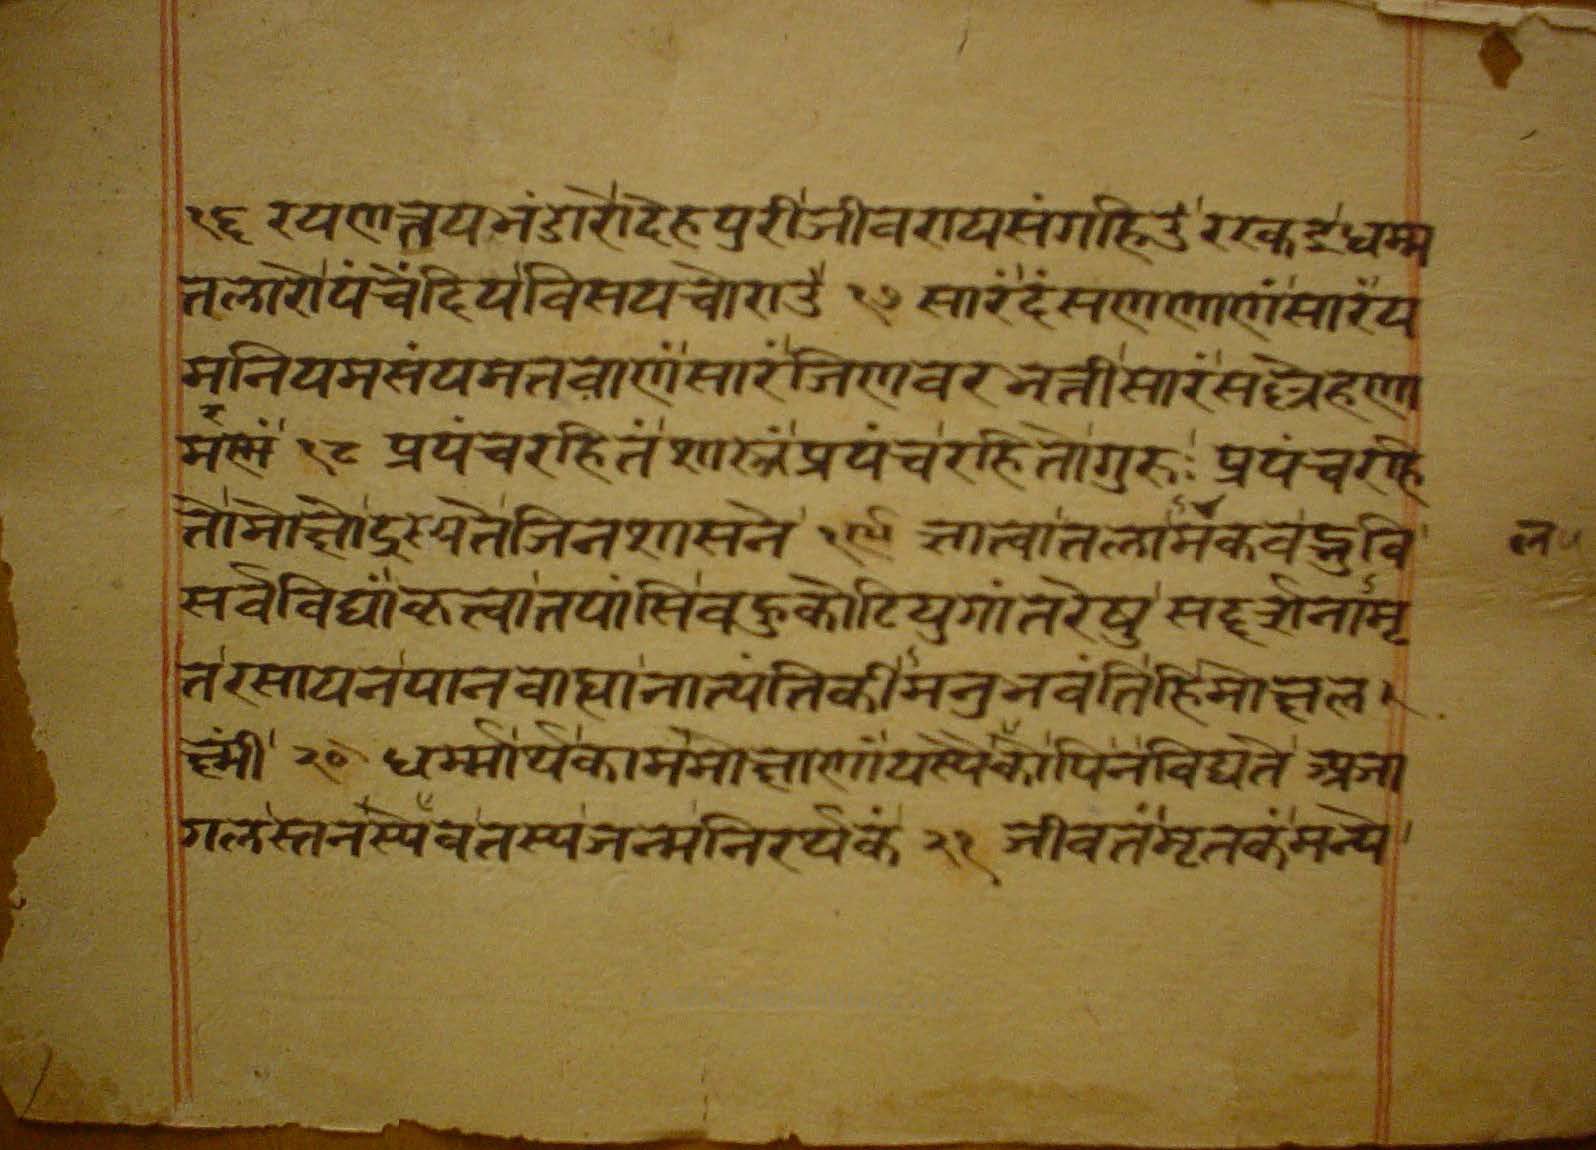 १६ रयणत्तयभंडारो देहपुरी जीवरायसंगहिउ ररकइ धम्म
तलारो पंचेंदियविसयचोराउ १७ सारं दंसणणाणं सारं य
मनियमसंयमतवाणं सारं जिणवरभत्ती सारं सल्लेहणा
मरणं १८ प्रपंचरहितं शास्त्रं प्रपंचरहितो गुरुः प्रपंचरहि
तो मोक्षो दृश्यते जिनशासने १९ ज्ञात्वा तलामलकवद्भुवि
सर्वविद्यां कृत्वा तपांसि बहुकोटियुगांतरेषु सद्दर्शनामृ
तरसायनपानबाह्या नात्यंतिकीमनुभवंति हि मोक्षल
क्ष्मीं २० धर्मार्थकाममोक्षाणां यस्यैकोपि न विद्यते अजा
गलस्तनस्यैव तस्य जन्म निरर्थकं २१ जीवतं मृतकं मन्ये
ल ५